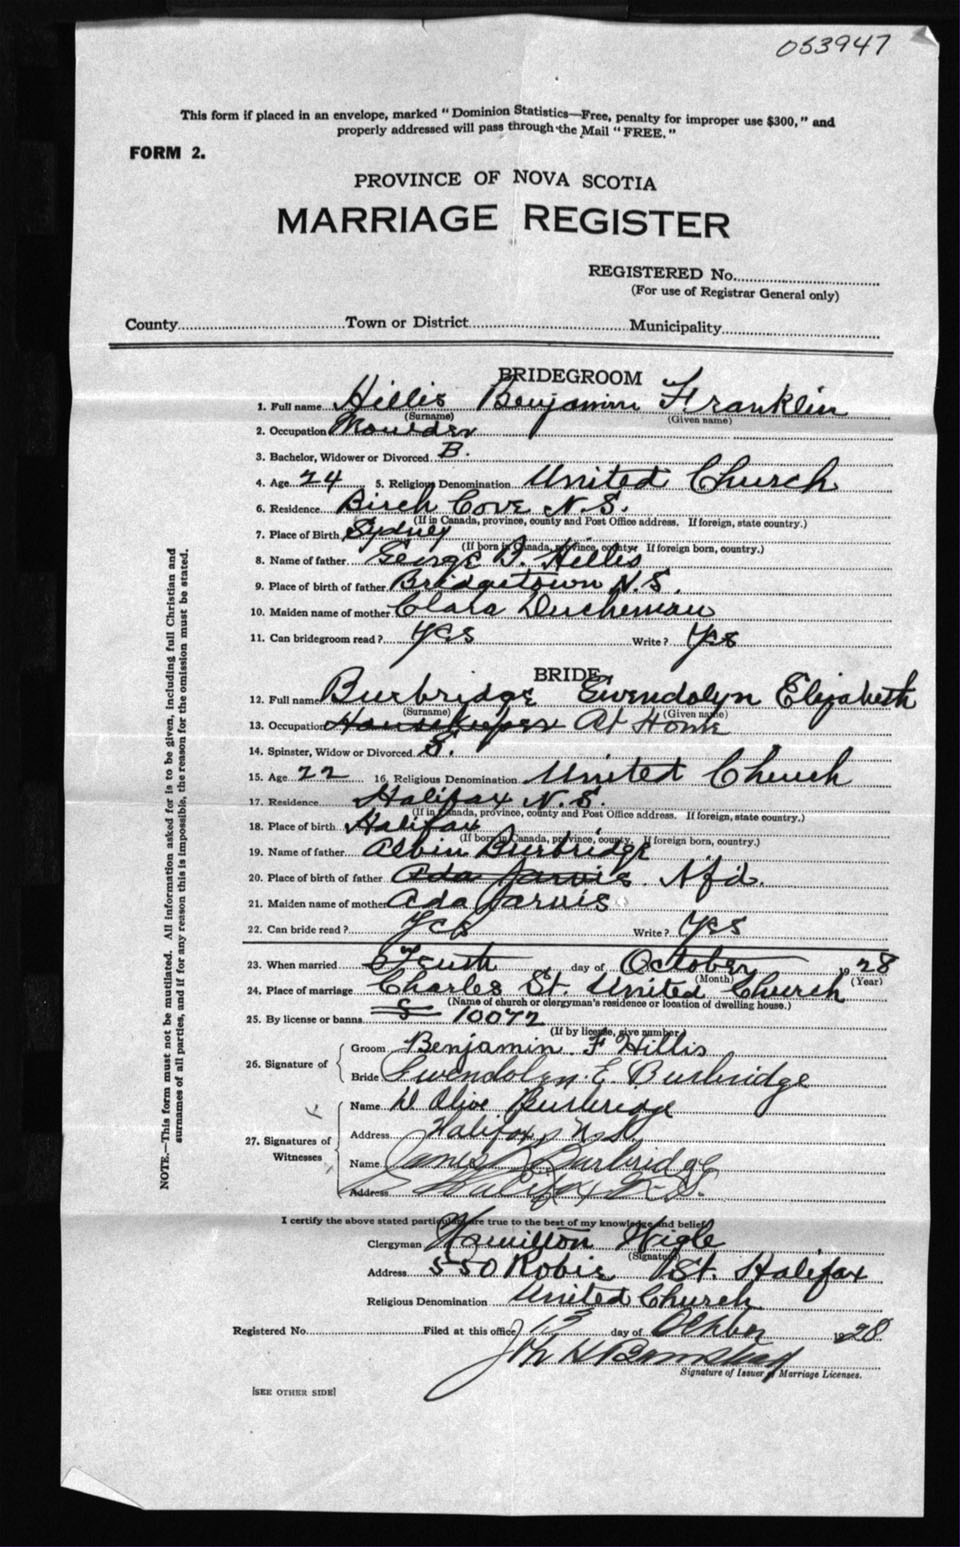 053947
This form if placed in an envelope, marked "Dominion Statistics—Free, penalty for improper use $300," and
properly addressed will pass through the Mail "FREE."
FORM 2.
PROVINCE OF NOVA SCOTIA
MARRIAGE REGISTER
REGISTERED No.
(For use of Registrar General only)
County Town or District Municipality
BRIDEGROOM
1. Full name Hillis Benjamin Franklin
(Surname) (Given name)
2. Occupation Moulder
3. Bachelor, Widower or Divorced B.
4. Age 24 5. Religious Denomination United Church
6. Residence Birch Cove N.S.
(If in Canada, province, county and Post Office address. If foreign, state country.)
7. Place of Birth Sydney
(If born in Canada, province, county. If foreign born, country.)
8. Name of father George D. Hillis
9. Place of birth of father Bridgetown N.S.
10. Maiden name of mother Clara Ducheman
11. Can bridegroom read? Yes Write? Yes
BRIDE
12. Full name Burbridge Gwendolyn Elizabeth
(Surname) (Given name)
13. Occupation Housekeeper At Home
14. Spinster, Widow or Divorced S.
15. Age 22 16. Religious Denomination United Church
17. Residence Halifax N.S.
(If in Canada, province, county and Post Office address. If foreign, state country.)
18. Place of birth Halifax
(If born in Canada, province, county. If foreign born, country.)
19. Name of father Albin Burbridge
20. Place of birth of father Ada Jarvis. Nfd.
21. Maiden name of mother Ada Jarvis
22. Can bride read? Yes Write? Yes
23. When married day of October 1928
(Month) (Year)
24. Place of marriage Charles St. United Church
(Name of church or clergyman's residence or location of dwelling house.)
25. By license or banns 10072
(If by license, give number)
26. Signature of Groom Benjamin F Hillis
Bride Gwendolyn E. Burbridge
27. Signatures of Witnesses Name Olive Burbridge
Address Halifax, N.S.
Name James Burbridge
Address Halifax N.S.
I certify the above stated particulars are true to the best of my knowledge and belief
Clergyman Hamilton Wigle
(Signature)
Address 550 Robie St. Halifax
Religious Denomination United Church
Registered No. Filed at this office 13 day of October 1928
Signature of Issuer of Marriage Licenses.
[SEE OTHER SIDE]
NOTE.—This form must not be mutilated. All information asked for is to be given, including full Christian and
surnames of all parties, and if for any reason this is impossible, the reason for the omission must be stated.